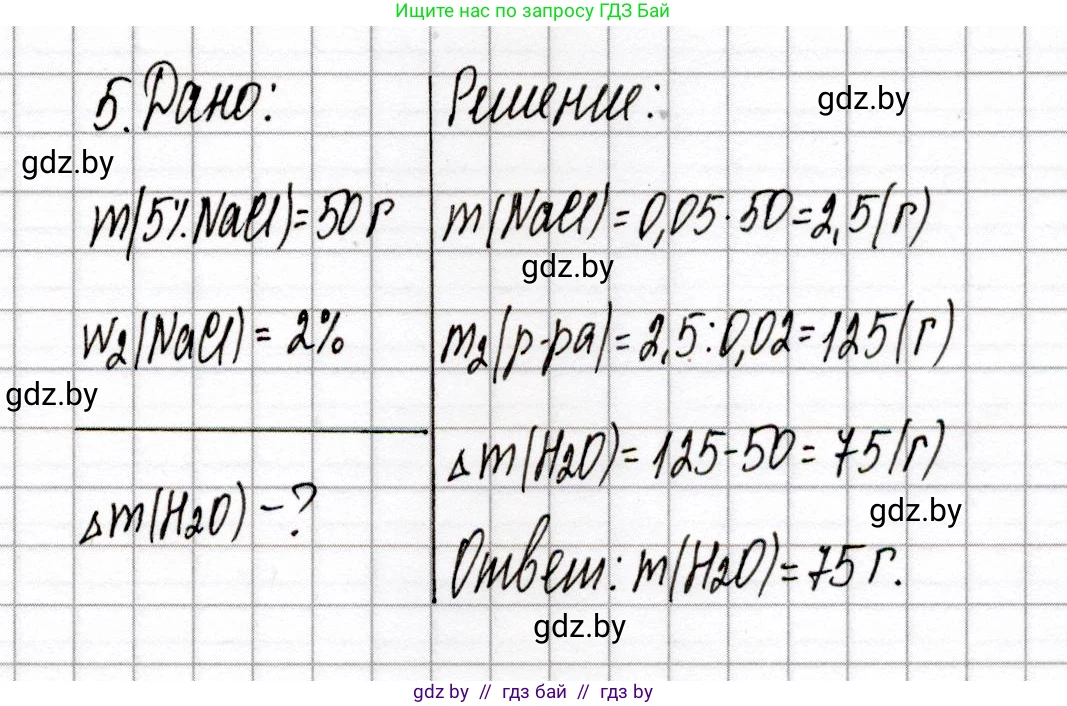 Ищите нас по запросу ГДЗ Бай
5. Дано:
Решение:
gdz.by
gdz.by
m(5% NaCl)=50 г
m(NaCl)=0,05·50=2,5(г)
gdz.by
w₂(NaCl)=2%
m₂(р-ра)=2,5:0,02=125(г)
gdz.by
Δm(H₂O)=125-50=75(г)
Δm(H₂O)-?
gdz.by
Ответ: m(H₂O)=75 г.
gdz.by
gdz by // гдз бай // гдз by